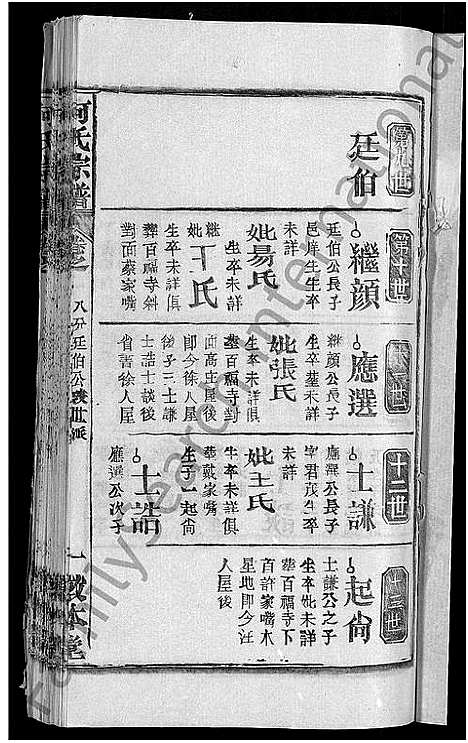 第九世
廷伯
第十世
繼顔
廷伯公長子
邑庠生生卒
未詳
妣易氏
生卒未詳
繼妣丁氏
生卒未詳俱
葬百福寺斜
對面蔡家嘴
應選
繼顔公長子
生卒塟未詳
妣張氏
生卒未詳俱
塟百福寺對
面高士屋後
卽今徐人屋
後子三士謙
士誥士談後
省著徐人屋
十二世
士謙
應選公長子
字君茂生卒
未詳
妣王氏
生卒未詳俱
塟戴家嘴
生子一起尙
士誥
應選公次子
十三世
起尙
士謙公之子
生卒妣未詳
葬百福寺下
首許家嘴木
星地卽今汪
人屋後
何氏宗譜
卷之一
八分廷伯公
世派
一
敦本堂
FamilySearch International